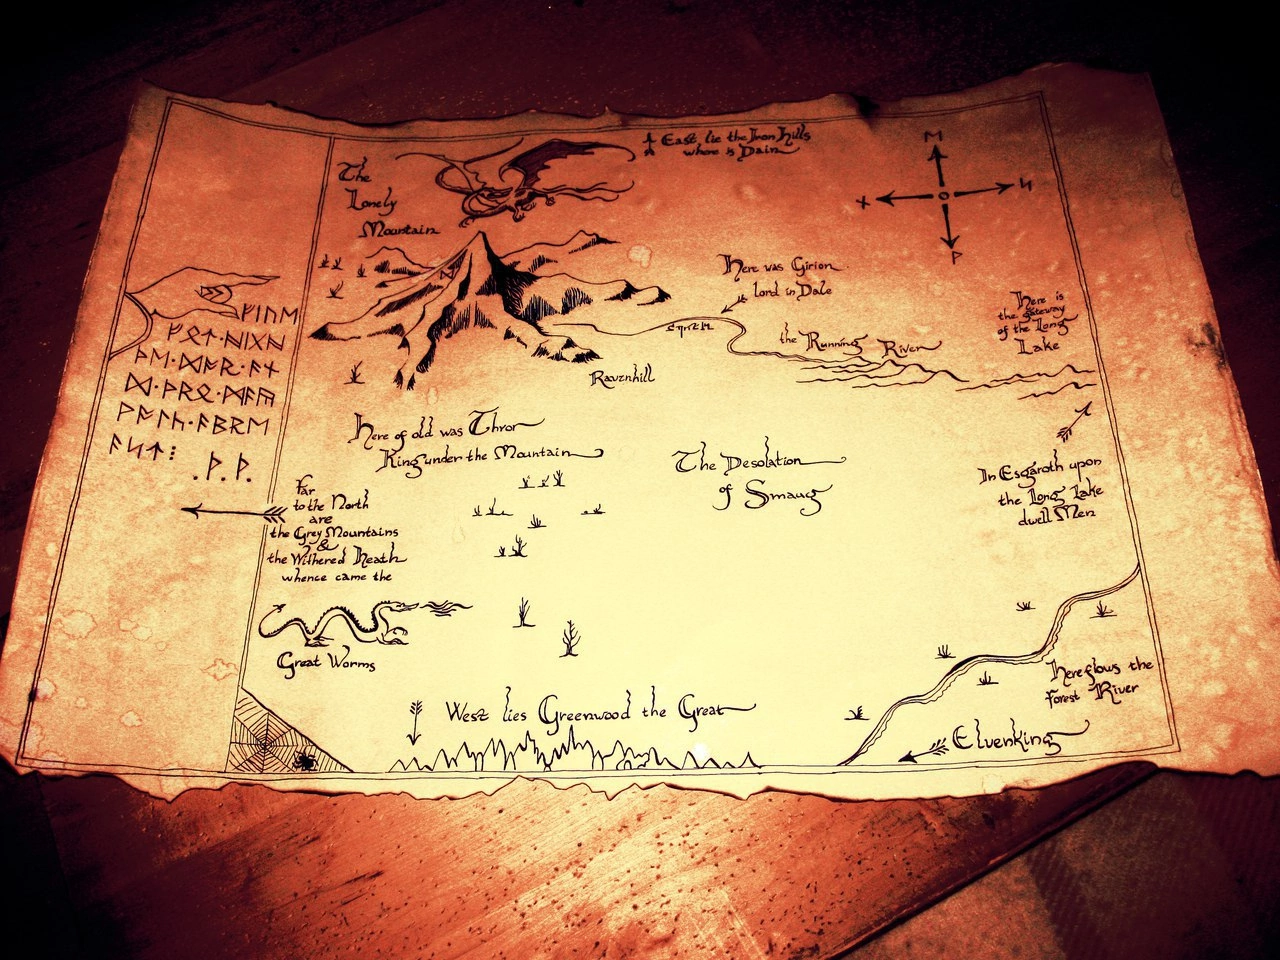 The
Lonely
Mountain
East lie the Iron Hills
where is Dain
ᛗ
ᛋ
ᚹ
ᛡ
Here was Girion
lord in Dale
the Running River
Here is
the gateway
of the Long
Lake
Ravenhill
ᚠᛁᚢᛖ
ᚠᚩᛏ᛫ᚻᛁᚷᚻ
ᚦᛖ᛫ᛞᚩᚱ᛫ᚪᚾ
ᛞ᛫ᚦᚱᛟ᛫ᛗᚪᚣ
ᚹᚪᛚᚳ᛫ᚪᛒᚱᛖ
ᚪᛋᛏ᛬
᛫ᚦ᛫ᚦ᛫
Here of old was Thror
King under the Mountain
The Desolation
of Smaug
In Esgaroth upon
the Long Lake
dwell Men
Far
to the North
are
the Grey Mountains
&
the Withered Heath
whence came the
Great Worms
West lies Greenwood the Great
Here flows the
forest River
Elvenking